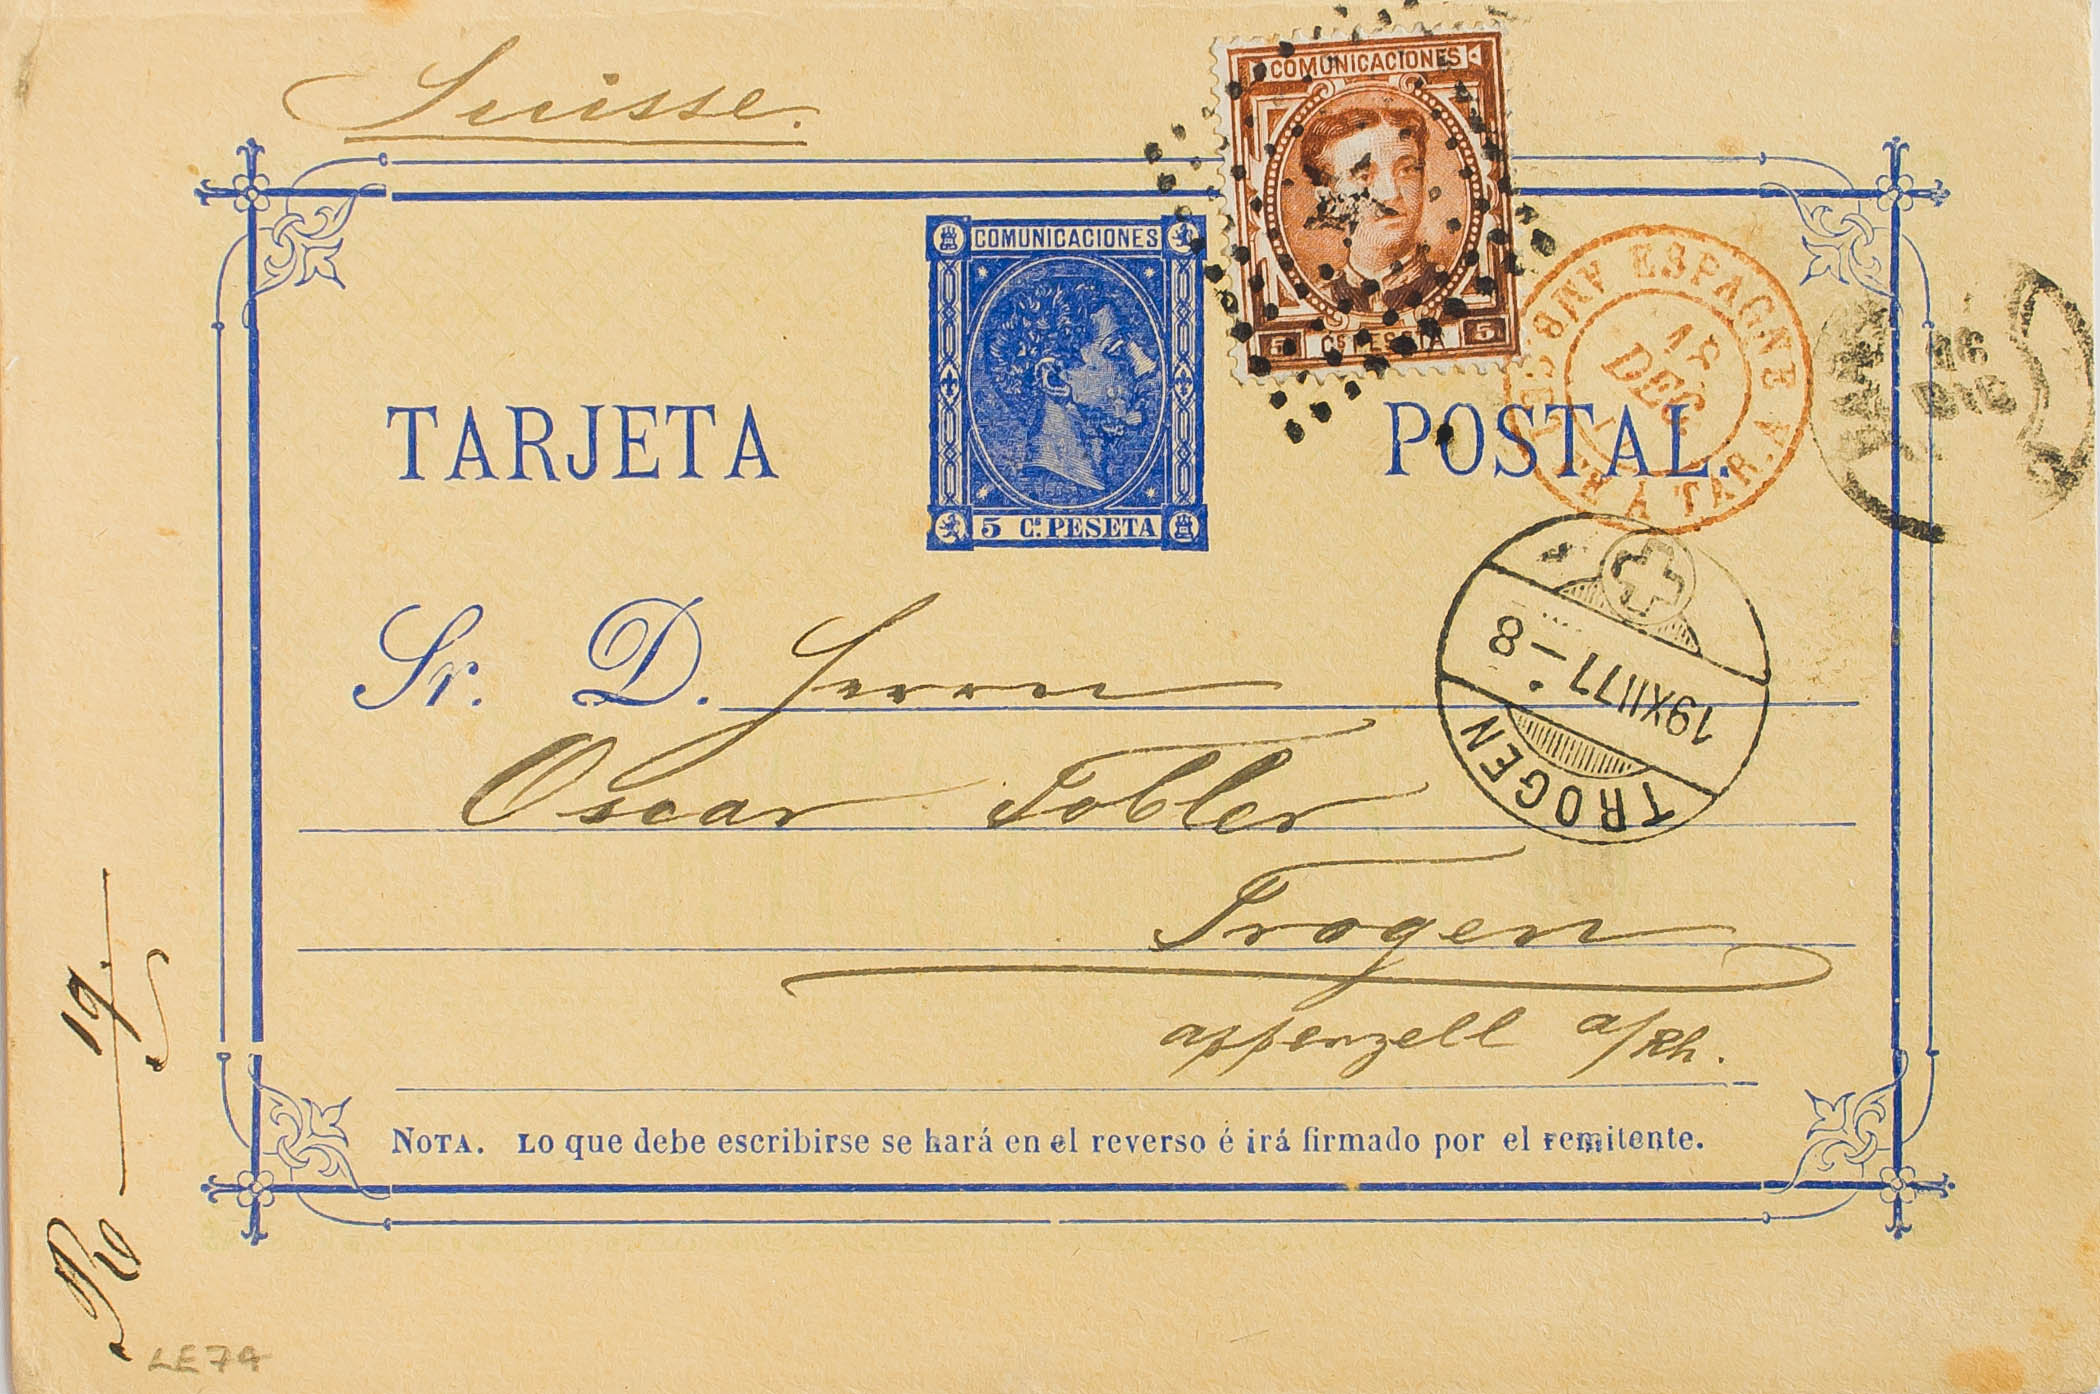 Suisse.
COMUNICACIONES
5 Cs PESETA 5
COMUNICACIONES
5 Cs. PESETA
ESPAGNE
18
DEC
A TAR.
16
DIC
TARJETA POSTAL.
Sr. D. Herrn
Oscar Tobler
Trogen
appenzell a/Rh.
19XII77–8
TROGEN
NOTA. Lo que debe escribirse se hará en el reverso é irá firmado por el remitente.
19
LE74